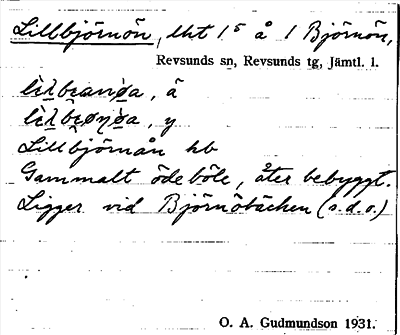 Lillbjörnön, lht 1⁵ å 1 Björnön,
Revsunds sn, Revsunds tg, Jämtl. l.
, å
, y
Lillbjörnån hb
Gammalt ödeböle, åter bebyggt.
Ligger vid Björnöbäcken (s.d.o.)
O. A. Gudmundson 1931.